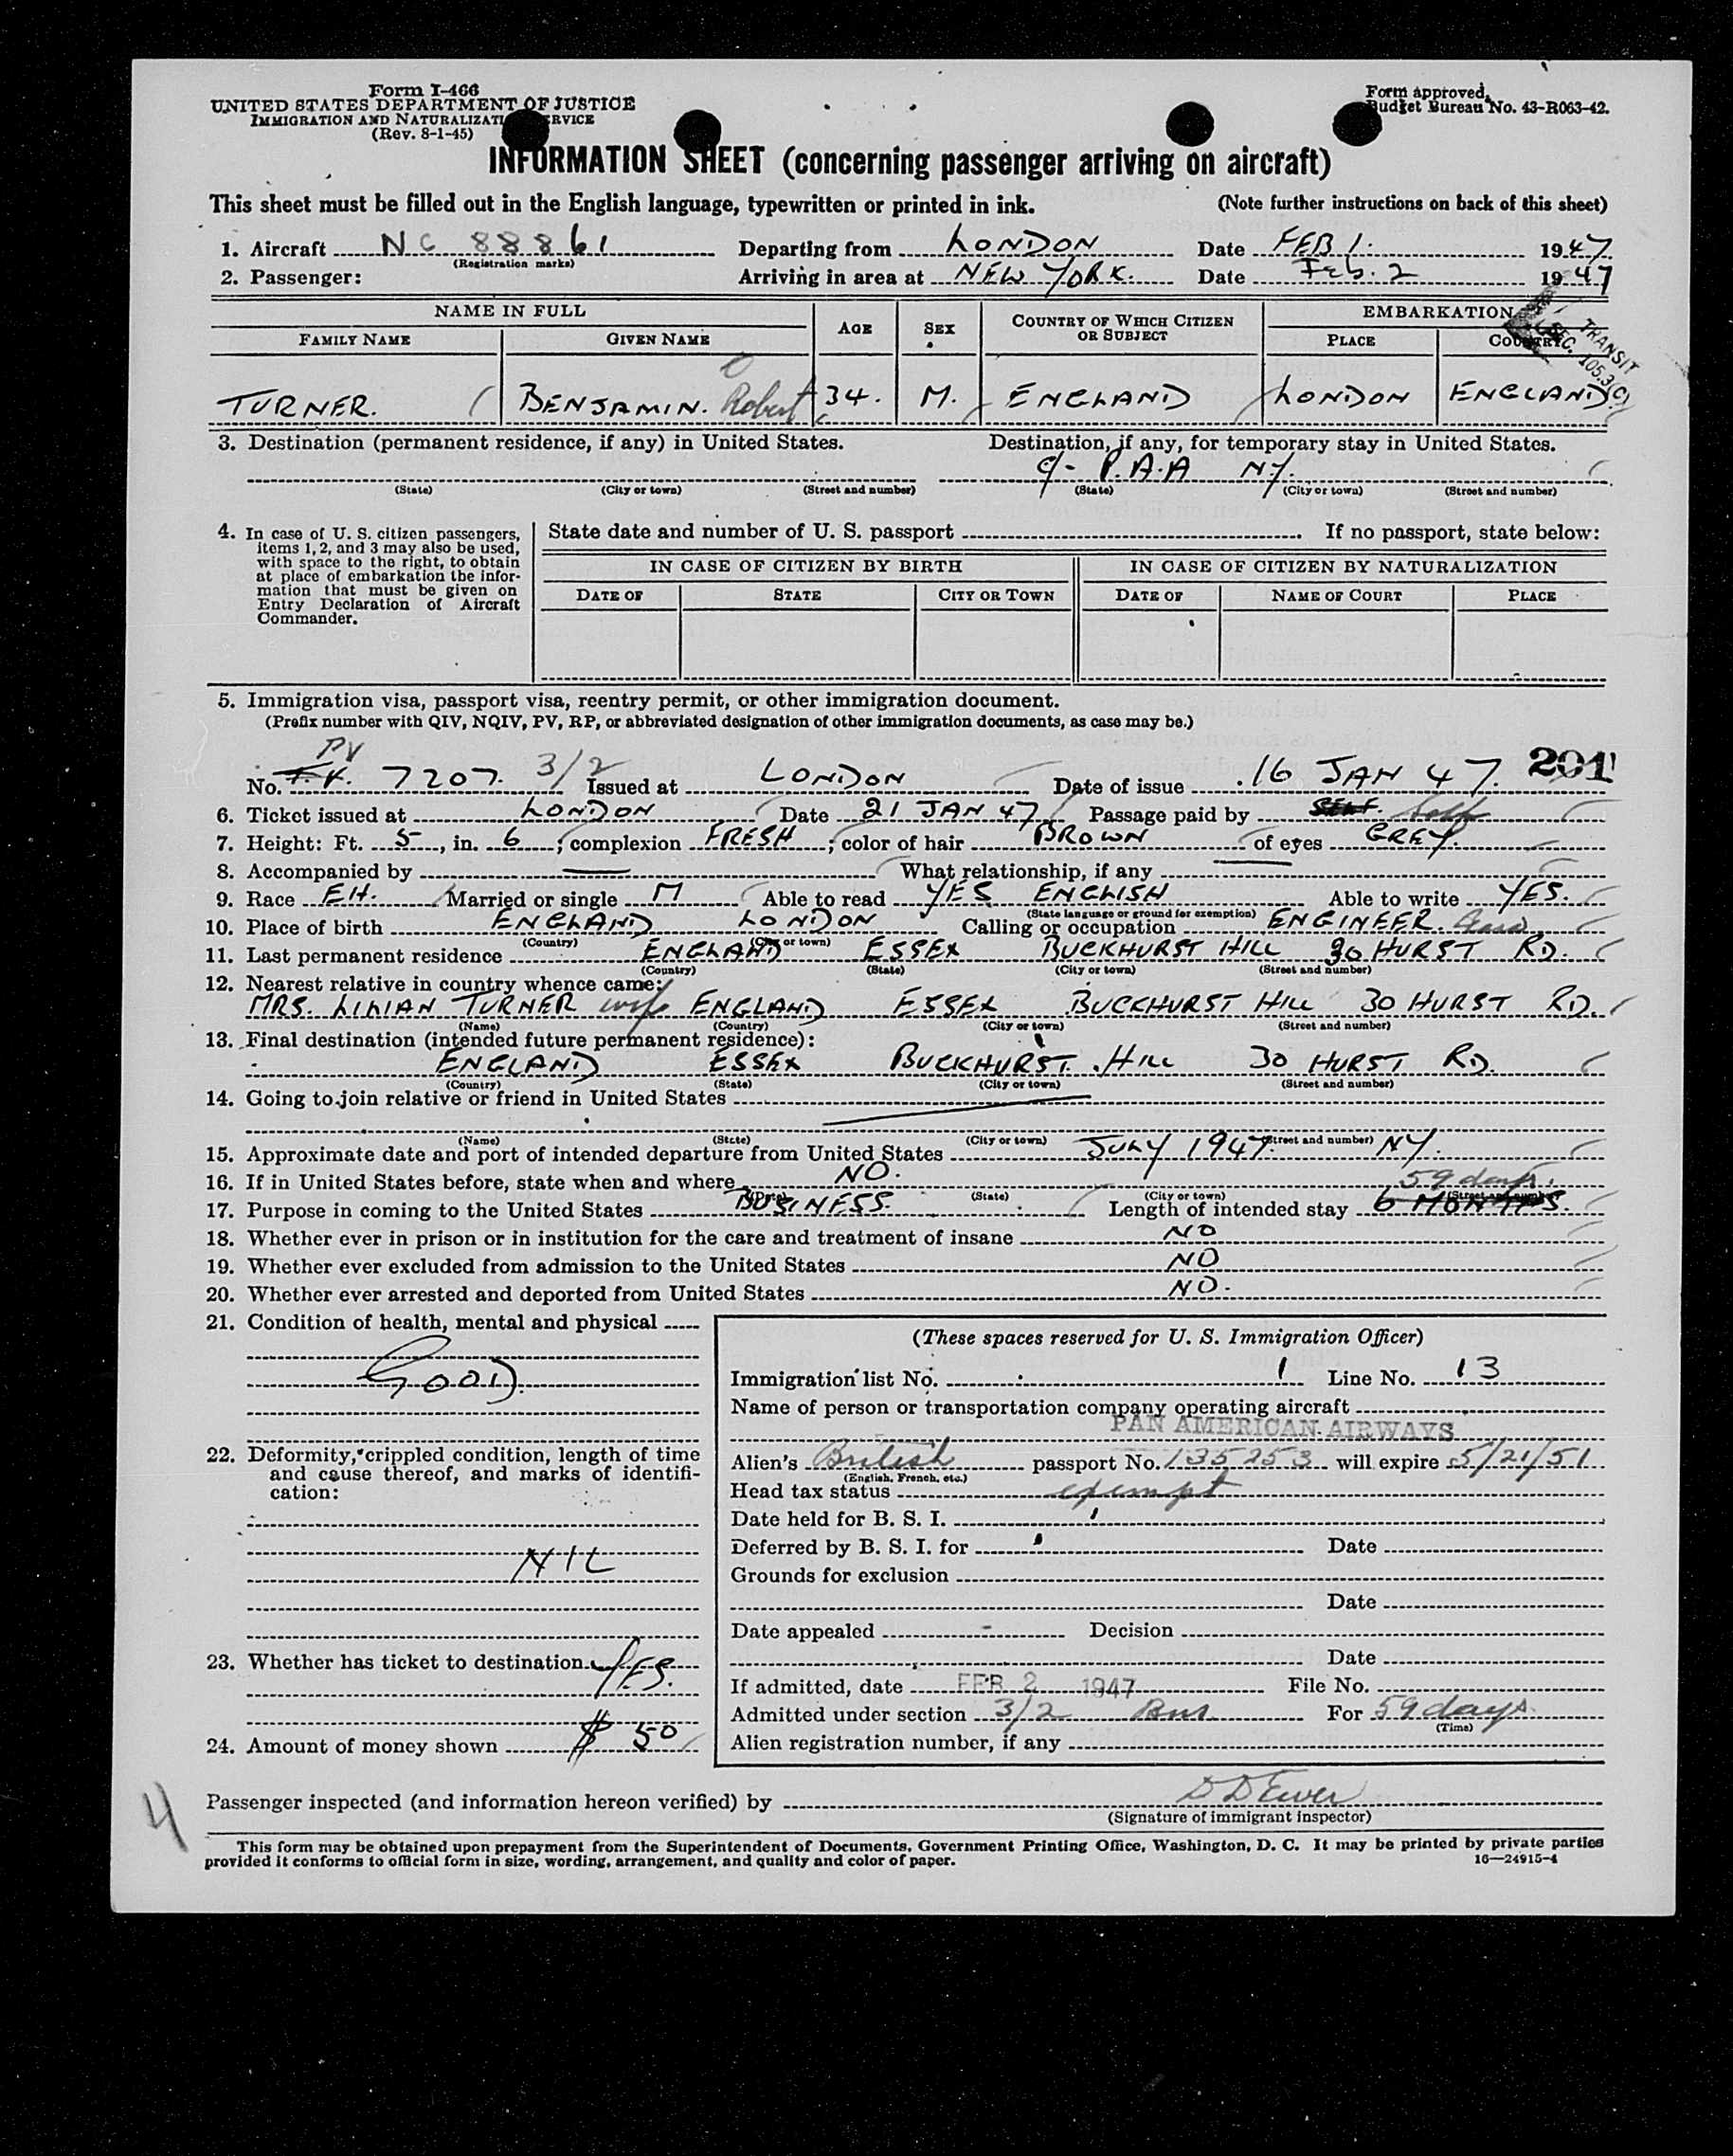 Form I-466
UNITED STATES DEPARTMENT OF JUSTICE
IMMIGRATION AND NATURALIZATI RVICE
(Rev. 8-1-45)
Form approved.
Budget Bureau No. 43-R063-42.
INFORMATION SHEET (concerning passenger arriving on aircraft)
This sheet must be filled out in the English language, typewritten or printed in ink. (Note further instructions on back of this sheet)
1. Aircraft NC 88861 Departing from LONDON Date FEB 1. 1947
(Registration marks)
2. Passenger: Arriving in area at NEW YORK. Date Feb. 2 1947
NAME IN FULL AGE SEX COUNTRY OF WHICH CITIZEN OR SUBJECT EMBARKATION
FAMILY NAME GIVEN NAME PLACE COUNTRY
TRANSIT
SEC. 105.3(C)
TURNER. BENJAMIN. Robert 34. M. ENGLAND LONDON ENGLAND
3. Destination (permanent residence, if any) in United States. Destination, if any, for temporary stay in United States.
c/- P.A.A N.Y.
(State) (City or town) (Street and number) (State) (City or town) (Street and number)
4. In case of U. S. citizen passengers, items 1, 2, and 3 may also be used, with space to the right, to obtain at place of embarkation the information that must be given on Entry Declaration of Aircraft Commander.
State date and number of U. S. passport If no passport, state below:
IN CASE OF CITIZEN BY BIRTH IN CASE OF CITIZEN BY NATURALIZATION
DATE OF STATE CITY OR TOWN DATE OF NAME OF COURT PLACE
5. Immigration visa, passport visa, reentry permit, or other immigration document.
(Prefix number with QIV, NQIV, PV, RP, or abbreviated designation of other immigration documents, as case may be.)
PV
No. 7207. 3/2 Issued at LONDON Date of issue 16 JAN 47. 201
6. Ticket issued at LONDON Date 21 JAN 47 Passage paid by SELF Self
7. Height: Ft. 5, in. 6; complexion FRESH; color of hair BROWN of eyes GREY.
8. Accompanied by What relationship, if any
9. Race EH. Married or single M Able to read YES ENGLISH Able to write YES.
(State language or ground for exemption)
10. Place of birth ENGLAND LONDON Calling or occupation ENGINEER.
(Country) (City or town)
11. Last permanent residence ENGLAND ESSEX BUCKHURST HILL 30 HURST RD.
(Country) (State) (City or town) (Street and number)
12. Nearest relative in country whence came:
MRS. LILIAN TURNER wife ENGLAND ESSEX BUCKHURST HILL 30 HURST RD.
(Name) (Country) (City or town) (Street and number)
13. Final destination (intended future permanent residence):
ENGLAND ESSEX BUCKHURST HILL 30 HURST RD.
(Country) (State) (City or town) (Street and number)
14. Going to join relative or friend in United States
(Name) (State) (City or town) (Street and number)
15. Approximate date and port of intended departure from United States JULY 1947. NY.
16. If in United States before, state when and where NO.
(Date) (State) (City or town) (Street and number)
59 days.
17. Purpose in coming to the United States BUSINESS. Length of intended stay 6 MONTHS.
18. Whether ever in prison or in institution for the care and treatment of insane NO
19. Whether ever excluded from admission to the United States NO
20. Whether ever arrested and deported from United States NO.
21. Condition of health, mental and physical
GOOD.
22. Deformity, crippled condition, length of time and cause thereof, and marks of identification:
NIL
23. Whether has ticket to destination YES.
24. Amount of money shown $ 50
(These spaces reserved for U. S. Immigration Officer)
Immigration list No. 1 Line No. 13
Name of person or transportation company operating aircraft
PAN AMERICAN AIRWAYS
Alien's British passport No. 135253 will expire 5/21/51
(English, French, etc.)
Head tax status exempt
Date held for B. S. I.
Deferred by B. S. I. for Date
Grounds for exclusion
Date
Date appealed Decision
Date
If admitted, date FEB 2 1947 File No.
Admitted under section 3/2 Bus For 59 days
(Time)
Alien registration number, if any
4
Passenger inspected (and information hereon verified) by D D Ewer
(Signature of immigrant inspector)
This form may be obtained upon prepayment from the Superintendent of Documents, Government Printing Office, Washington, D. C. It may be printed by private parties
provided it conforms to official form in size, wording, arrangement, and quality and color of paper. 16—24915-4